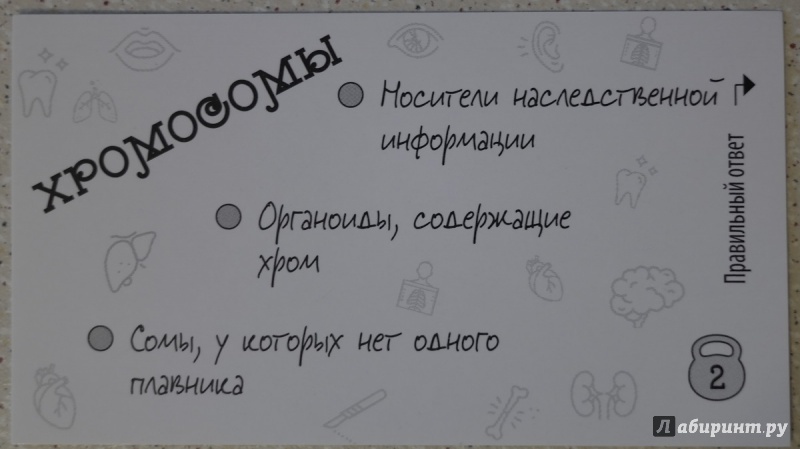 ХРОМОСОМЫ
Носители наследственной
информации
Органоиды, содержащие
хром
Сомы, у которых нет одного
плавника
Правильный ответ
2
Лабиринт.ру